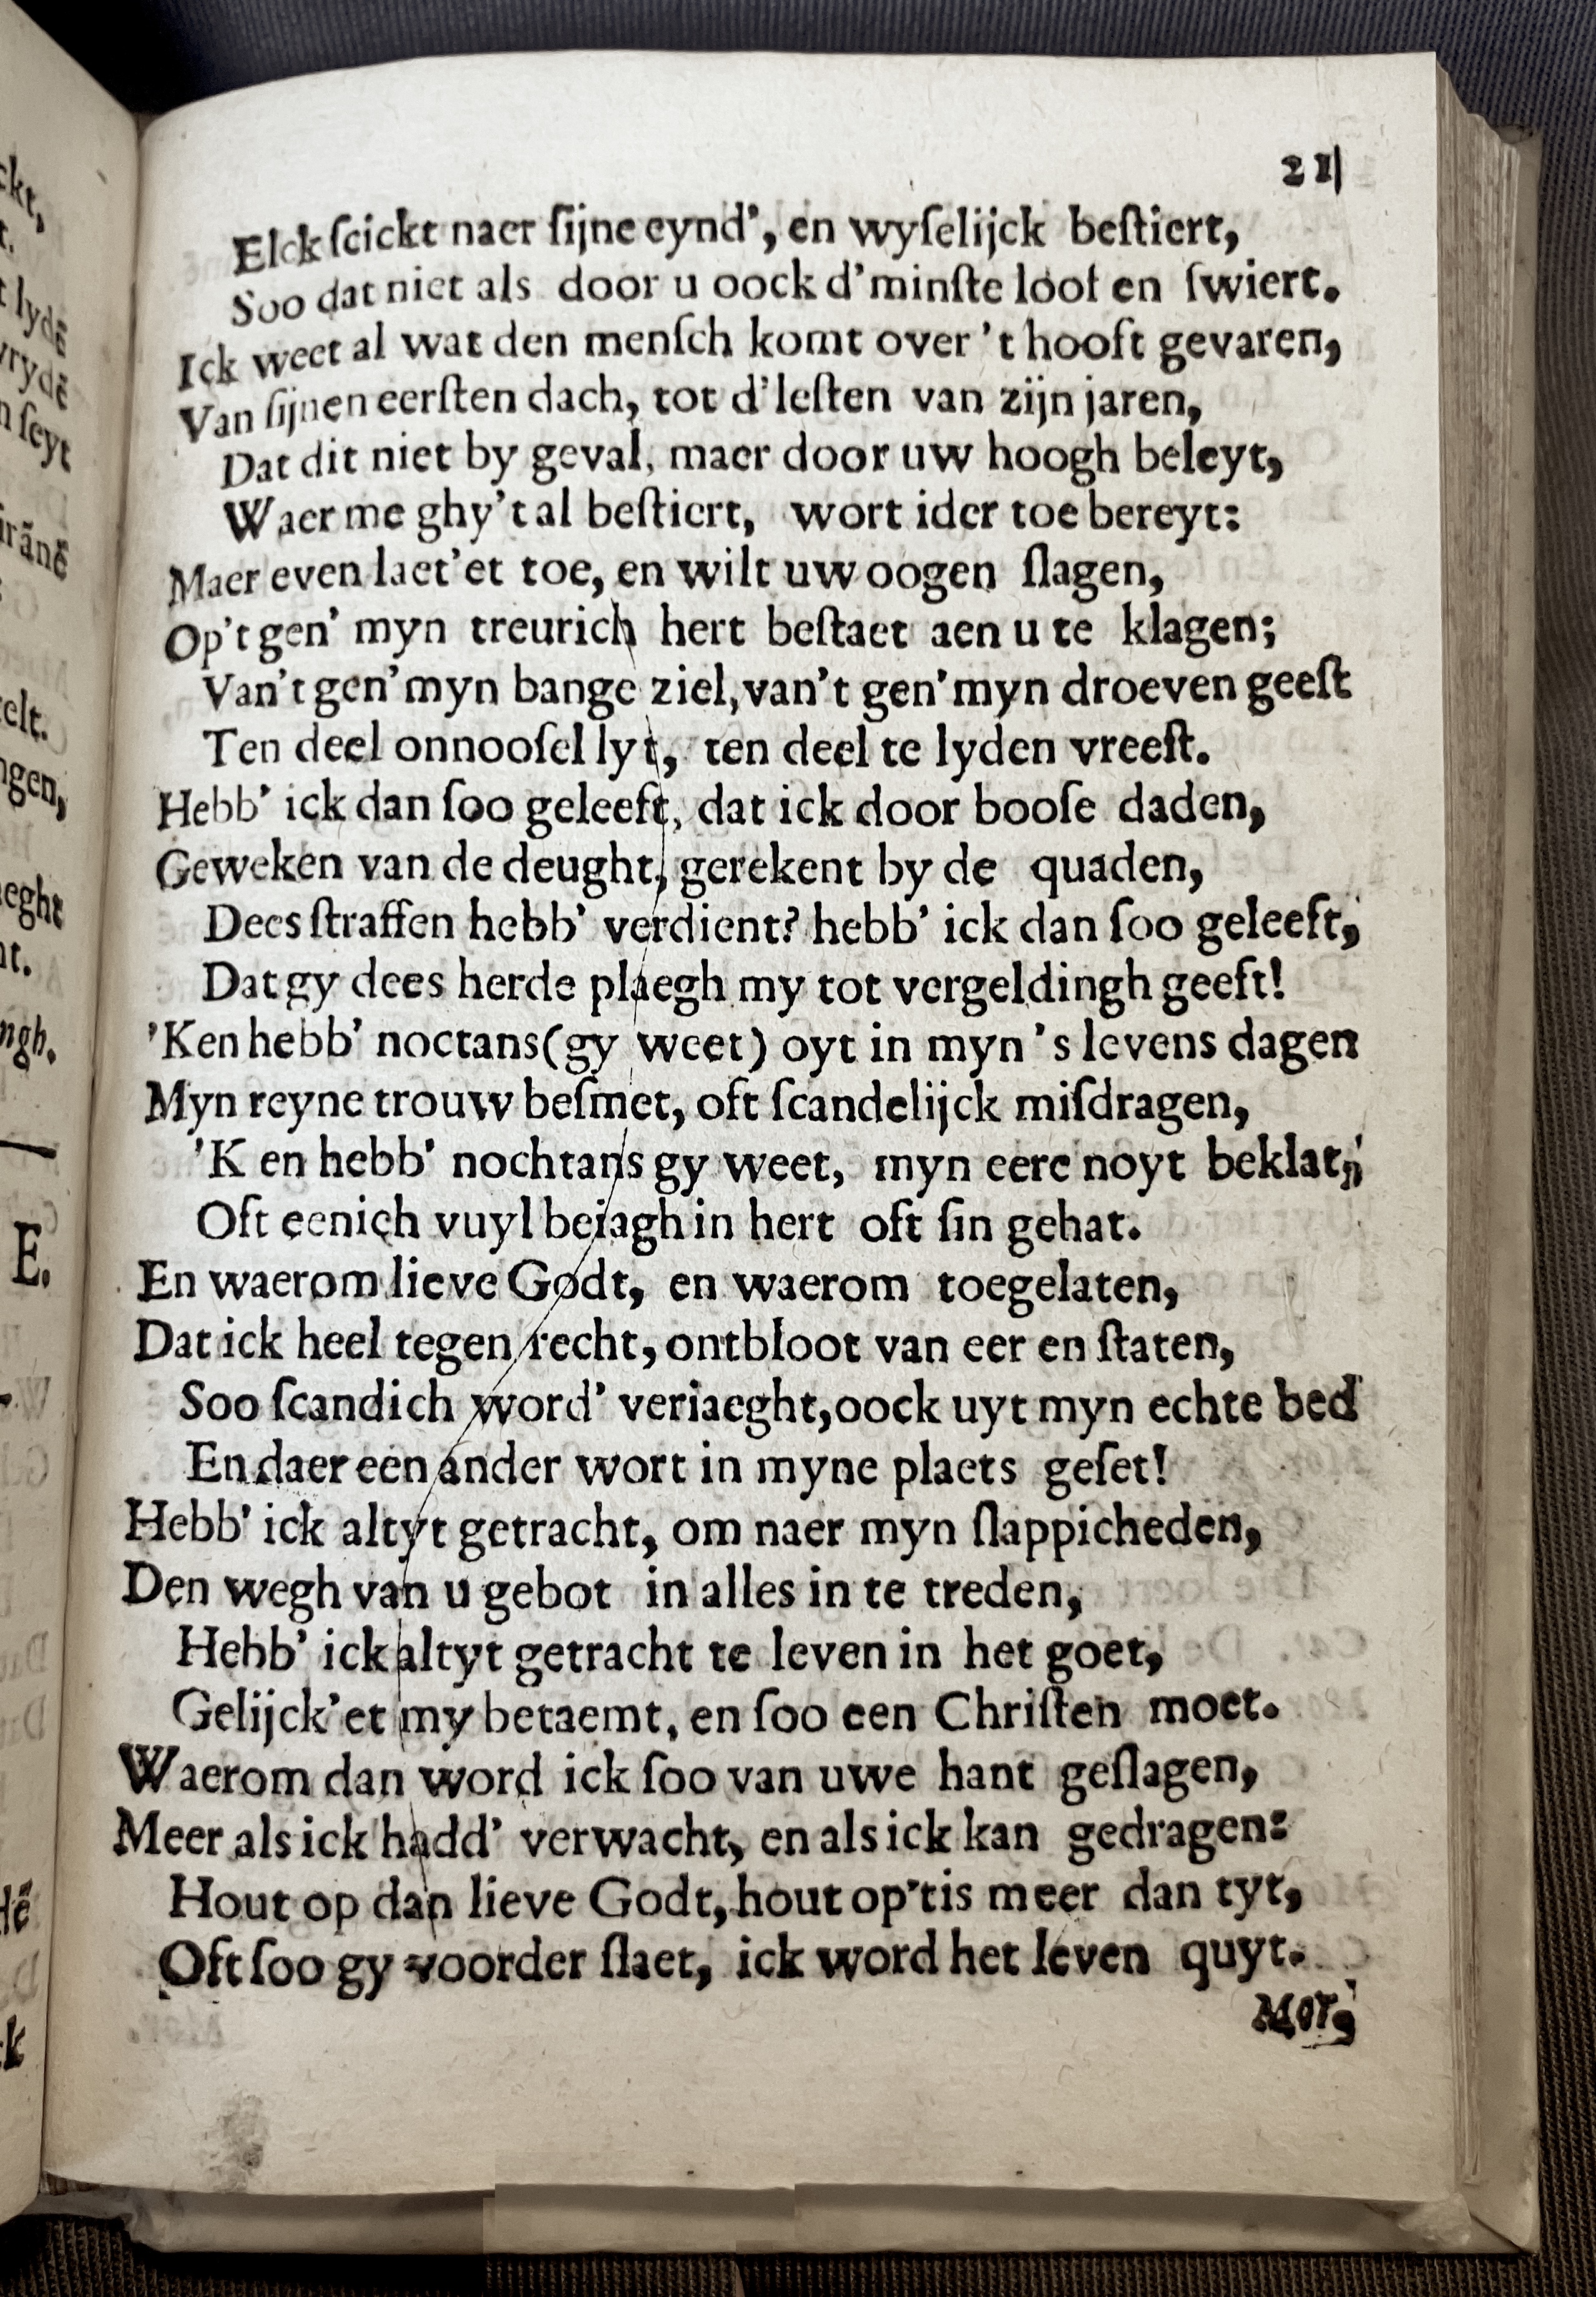 21
Elck ſcickt naer ſijne eynd', en wyſelijck beſtiert,
Soo dat niet als door u oock d'minſte loof en ſwiert.
Ick weet al wat den menſch komt over 't hooft gevaren,
Van ſijnen eerſten dach, tot d'leſten van zijn jaren,
Dat dit niet by geval, maer door uw hoogh beleyt,
Waer me ghy't al beſtiert, wort ider toe bereyt:
Maer even laet'et toe, en wilt uw oogen ſlagen,
Op't gen' myn treurich hert beſtaet aen u te klagen;
Van't gen' myn bange ziel, van't gen' myn droeven geeſt
Ten deel onnooſel lyt, ten deel te lyden vreeſt.
Hebb' ick dan ſoo geleeft, dat ick door booſe daden,
Geweken van de deught, gerekent by de quaden,
Dees ſtraffen hebb' verdient? hebb' ick dan ſoo geleeft,
Dat gy dees herde plaegh my tot vergeldingh geeft!
'Ken hebb' noctans (gy weet) oyt in myn 's levens dagen
Myn reyne trouw beſmet, oft ſcandelijck miſdragen,
'K en hebb' nochtans gy weet, myn eere noyt beklat,
Oft eenich vuyl beiagh in hert oft ſin gehat.
En waerom lieve Godt, en waerom toegelaten,
Dat ick heel tegen recht, ontbloot van eer en ſtaten,
Soo ſcandich word' veriaeght, oock uyt myn echte bed
En daer een ander wort in myne plaets geſet!
Hebb' ick altyt getracht, om naer myn ſlappicheden,
Den wegh van u gebot in alles in te treden,
Hebb' ick altyt getracht te leven in het goet,
Gelijck'et my betaemt, en ſoo een Chriſten moet.
Waerom dan word ick ſoo van uwe hant geſlagen,
Meer als ick hadd' verwacht, en als ick kan gedragen:
Hout op dan lieve Godt, hout op'tis meer dan tyt,
Oft ſoo gy voorder ſlaet, ick word het leven quyt.
Mor,